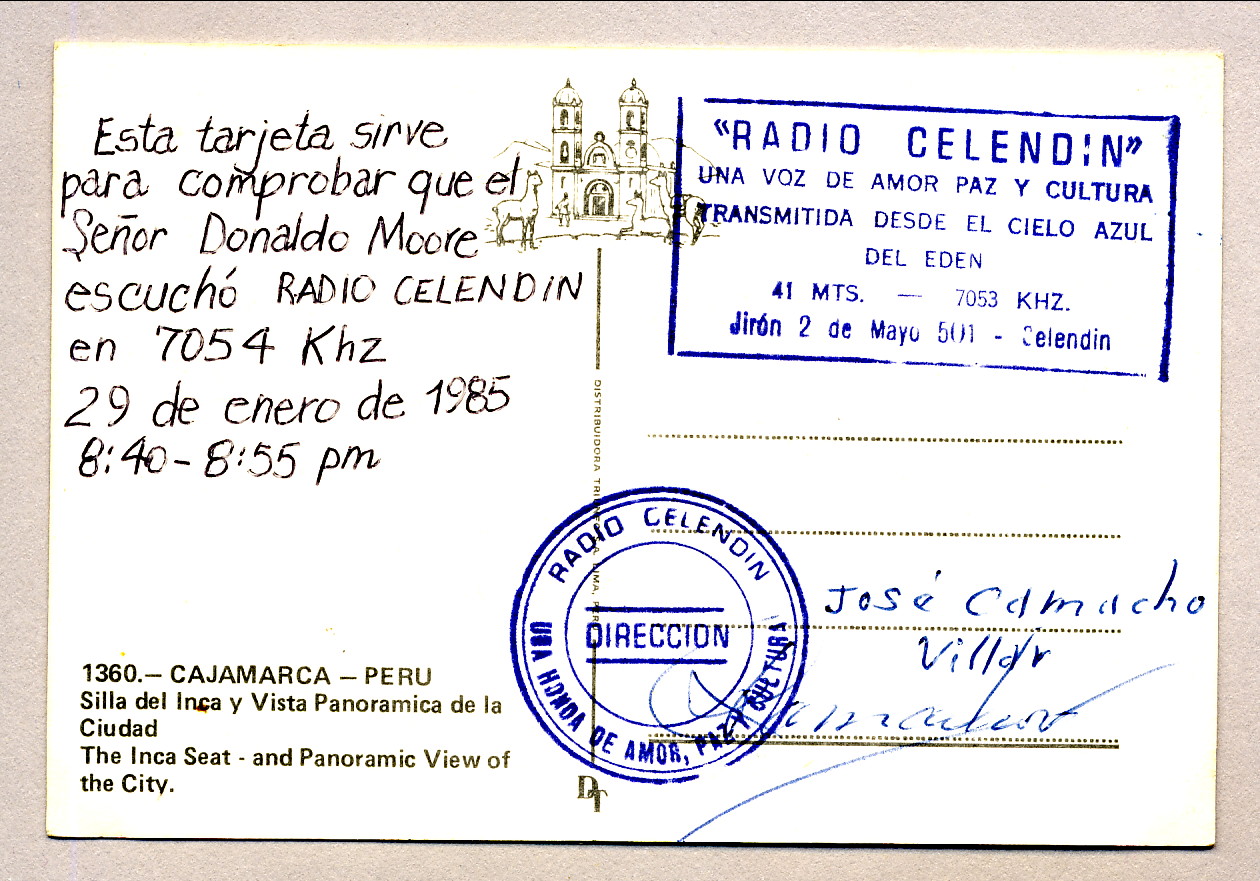 Esta tarjeta sirve
para comprobar que el
Señor Donaldo Moore
escuchó RADIO CELENDIN
en 7054 Khz
29 de enero de 1985
8:40-8:55 pm
1360.– CAJAMARCA – PERU
Silla del Inca y Vista Panoramica de la
Ciudad
The Inca Seat - and Panoramic View of
the City.
DISTRIBUIDORA LIMA, PERU
DT
"RADIO CELENDIN"
UNA VOZ DE AMOR PAZ Y CULTURA
TRANSMITIDA DESDE EL CIELO AZUL
DEL EDEN
41 MTS. — 7053 KHZ.
Jirón 2 de Mayo 501 - Celendin
RADIO CELENDIN
DIRECCION
UNA HONDA DE AMOR, PAZ Y CULTURA
José Camacho
Villar